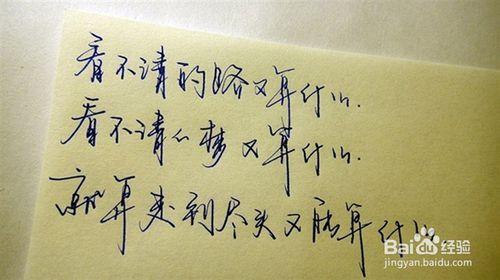 看不清的路又算什么.
看不清的梦又算什么.
就算走到尽头又能算什么.
Baidu 经验
jingyan.baidu.com